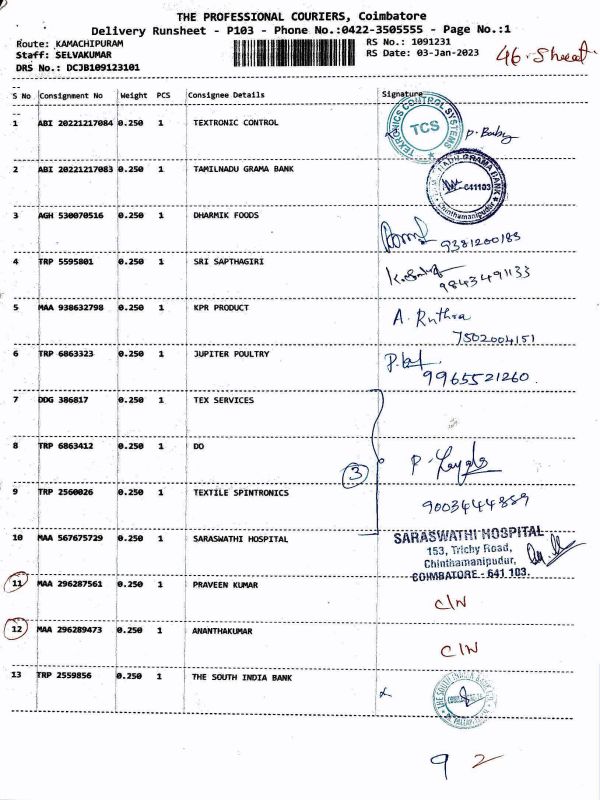 THE PROFESSIONAL COURIERS, Coimbatore
Delivery Runsheet - P103 - Phone No.:0422-3505555 - Page No.:1
Route: KAMACHIPURAM
RS No.: 1091231
Staff: SELVAKUMAR
RS Date: 03-Jan-2023
46-Sheet
DRS No.: DCJB109123101
S No Consignment No Weight PCS Consignee Details Signature
1 ABI 20221217084 0.250 1 TEXTRONIC CONTROL
TEXTRONICS CONTROL SYSTEMS
TCS
P. Baby
2 ABI 20221217083 0.250 1 TAMILNADU GRAMA BANK
NADU GRAMA BANK
641103
Chinthamanipudur
3 AGH 530070516 0.250 1 DHARMIK FOODS
9381200183
4 TRP 5595801 0.250 1 SRI SAPTHAGIRI
9843491133
5 MAA 938632798 0.250 1 KPR PRODUCT
A. Ruthra
7502004151
6 TRP 6863323 0.250 1 JUPITER POULTRY
9965521260.
7 DDG 386817 0.250 1 TEX SERVICES
8 TRP 6863412 0.250 1 DO
3
9 TRP 2560026 0.250 1 TEXTILE SPINTRONICS
9003444889
10 MAA 567675729 0.250 1 SARASWATHI HOSPITAL
SARASWATHI HOSPITAL
153, Trichy Road,
Chinthamanipudur,
COIMBATORE - 641 103.
11 MAA 296287561 0.250 1 PRAVEEN KUMAR
C/N
12 MAA 296289473 0.250 1 ANANTHAKUMAR
C/N
13 TRP 2559856 0.250 1 THE SOUTH INDIA BANK
THE SOUTH INDIA BANK
9 2